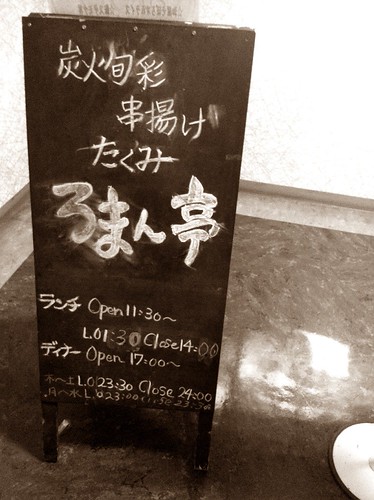 炭火旬彩
串揚げ
たくみ
ろまん亭
ランチ Open 11:30〜
L.O 1:30 Close 14:00
ディナー Open 17:00〜
木〜土 L.O 23:30 Close 24:00
月〜水 L.O 23:00 Close 23:30